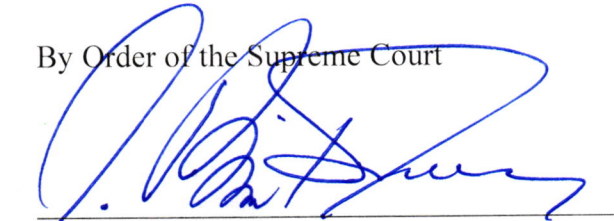 By Order of the Supreme Court